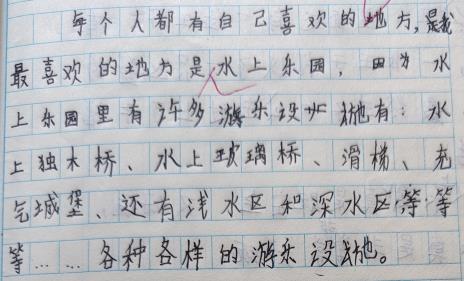 每个人都有自己喜欢的地方,是我
最喜欢的地方是水上乐园,因为水
上乐园里有许多游乐设施有:水
上独木桥、水上玻璃桥、滑梯、充
气城堡、还有浅水区和深水区等等
等……各种各样的游乐设施。